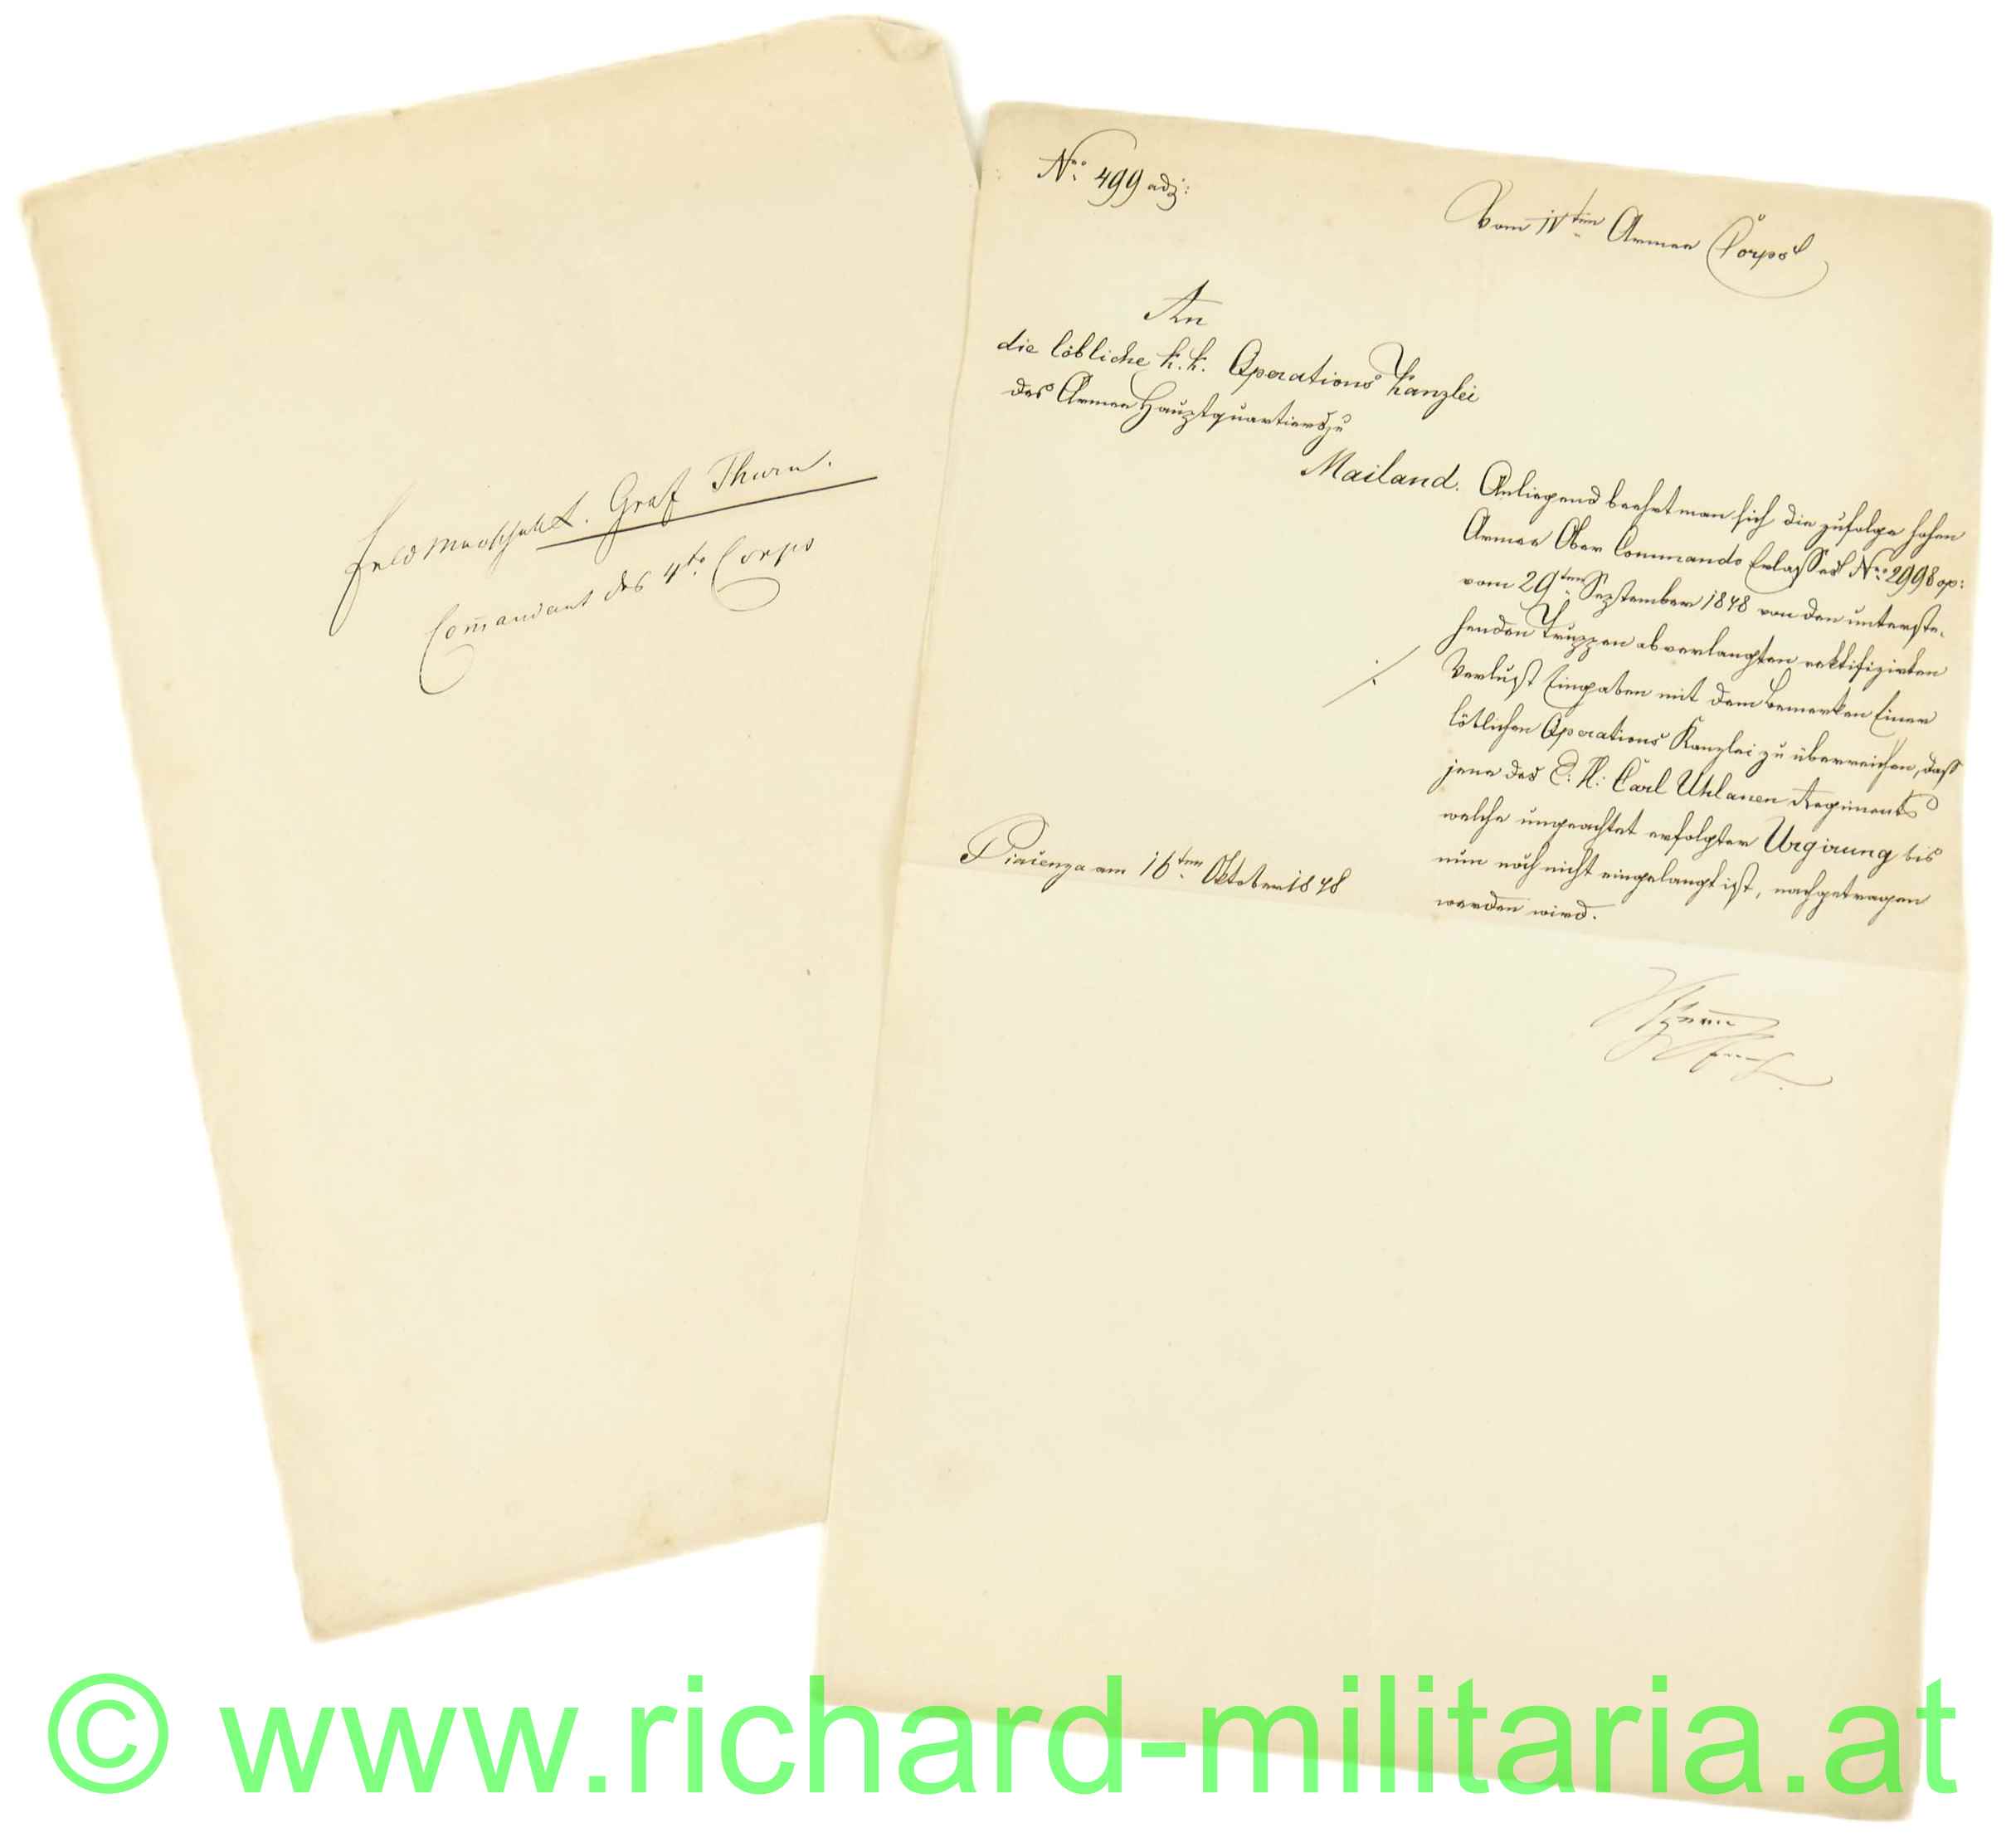 Feldmarschall. Graf Thurn.
Com̄andant des 4te Corps
Nro 499 adj:
Vom IVten Armee Corps
An
die löbliche k. k. Operations Kanzlei
des Armee Hauptquartiers zu
Mailand.
Anliegend beehrt man sich die zufolge hohen
Armee Ober Commando Erlasses Nro 2998 op:
vom 29ten September 1848 von den unterste-
henden Truppen abverlangten rektifizirten
Verlust Eingaben mit dem Bemerken Einer
löblichen Operations Kanzlei zu überreichen, daß
jene des E. H: Carl Uhlanen Regiments
welche ungeachtet erfolgter Urgirung bis
nun noch nicht eingelangt ist, nachgetragen
werden wird.
Piacenza am 16ten Oktober 1848
Thurn
© www.richard-militaria.at